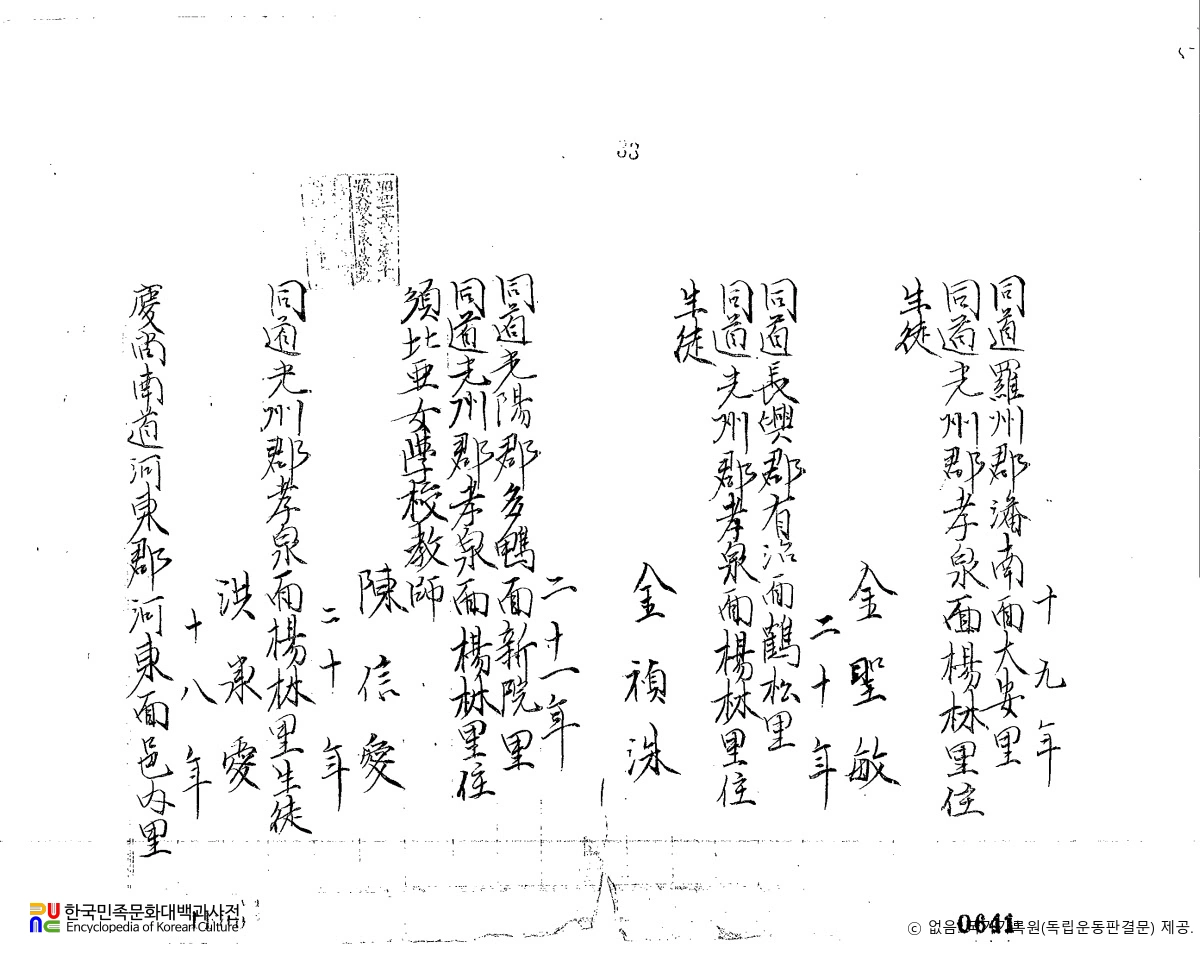 33
同道羅州郡潘南面大安里
同道光州郡孝泉面楊林里住
生徒
金聖敏
十九年
同道長興郡有治面鶴松里
同道光州郡孝泉面楊林里住
生徒
金禎洙
二十年
同道光陽郡多鴨面新院里
同道光州郡孝泉面楊林里住
須比亜女學校教師
陳信愛
二十一年
同道光州郡孝泉面楊林里生徒
洪承愛
二十年
慶尚南道河東郡河東面邑内里
十八年
한국민족문화대백과사전
Encyclopedia of Korean Culture
0641
(독립운동판결문) 제공.